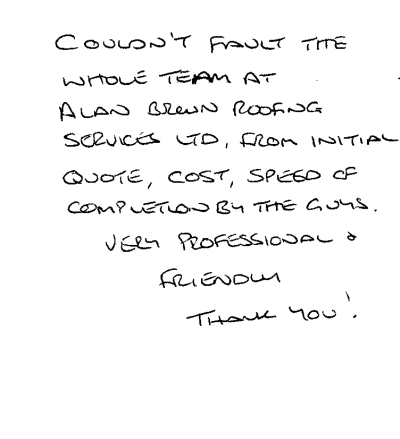 COULDN'T FAULT THE
WHOLE TEAM AT
ALAN BROWN ROOFING
SERVICES LTD, FROM INITIAL
QUOTE, COST, SPEED OF
COMPLETION BY THE GUYS.
VERY PROFESSIONAL &
FRIENDLY
THANK YOU!